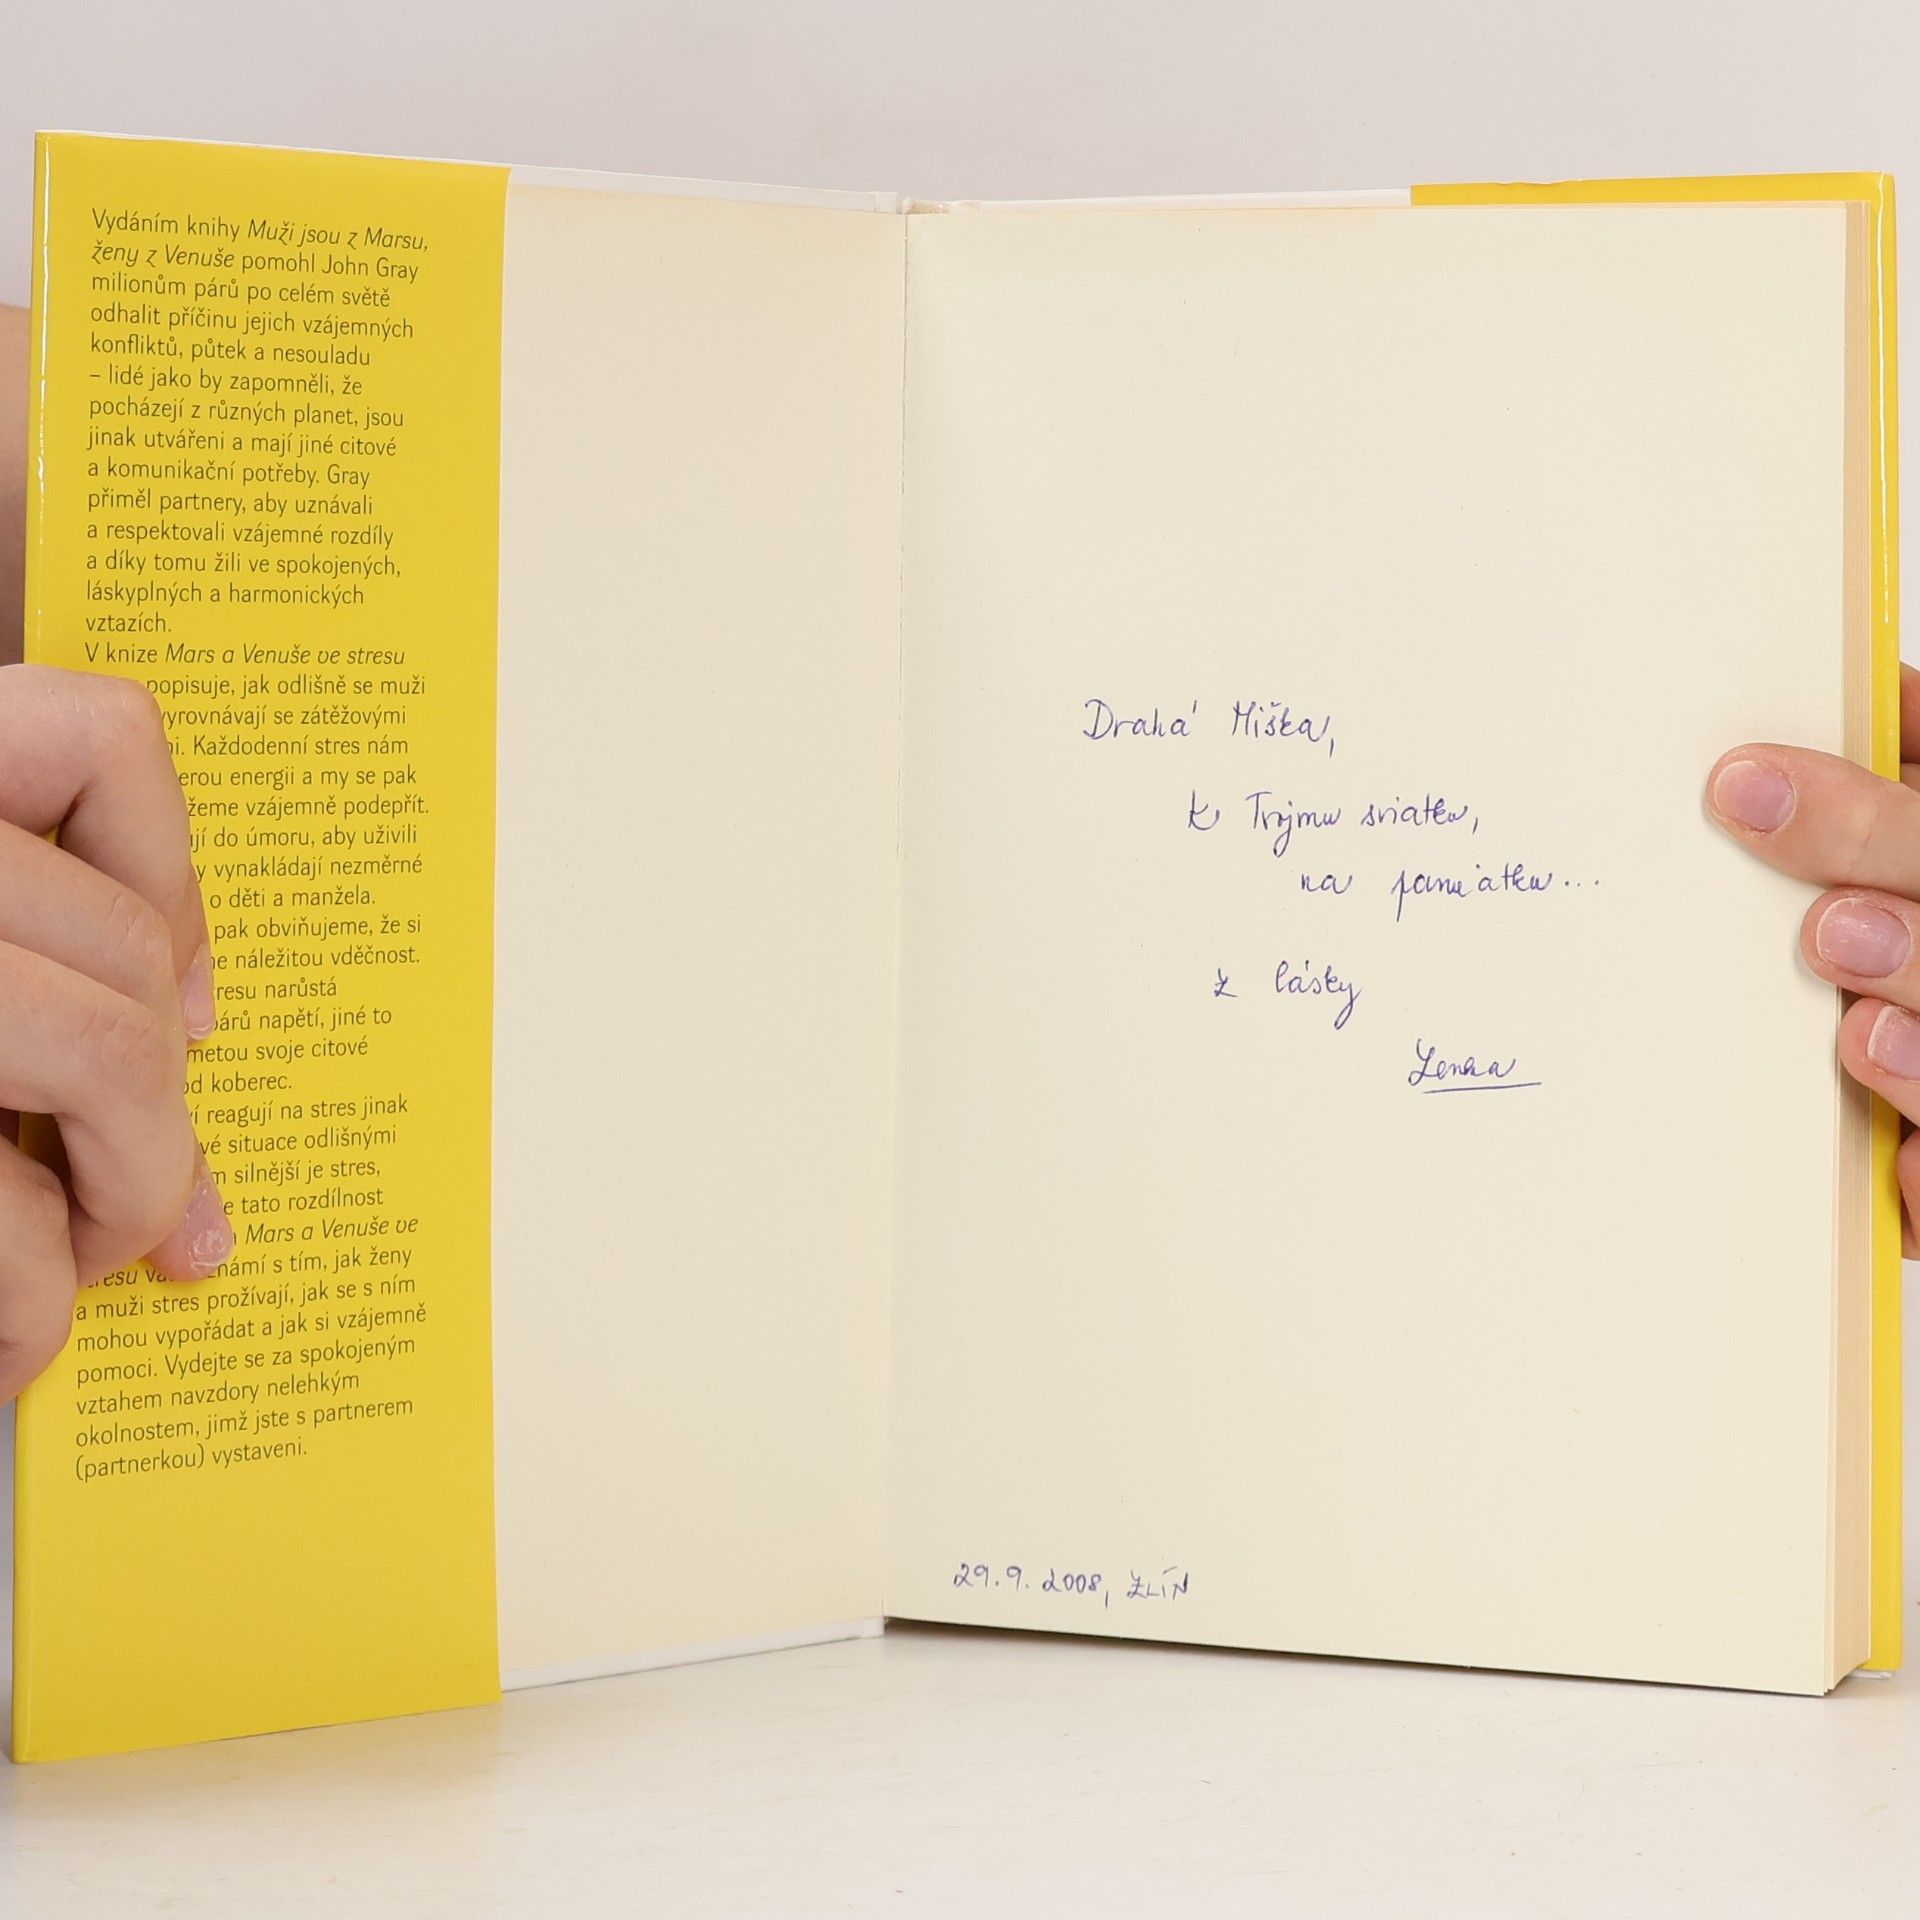 Vydáním knihy Muži jsou z Marsu,
ženy z Venuše pomohl John Gray
milionům párů po celém světě
odhalit příčinu jejich vzájemných
konfliktů, půtek a nesouladu
– lidé jako by zapomněli, že
pocházejí z různých planet, jsou
jinak utvářeni a mají jiné citové
a komunikační potřeby. Gray
přiměl partnery, aby uznávali
a respektovali vzájemné rozdíly
a díky tomu žili ve spokojených,
láskyplných a harmonických
vztazích.
V knize Mars a Venuše ve stresu
popisuje, jak odlišně se muži
vyrovnávají se zátěžovými
Každodenní stres nám
energii a my se pak
vzájemně podepřít.
do úmoru, aby uživili
vynakládají nezměrné
o děti a manžela.
pak obviňujeme, že si
náležitou vděčnost.
narůstá
párů napětí, jiné to
svoje citové
koberec.
reagují na stres jinak
situace odlišnými
silnější je stres,
tato rozdílnost
Mars a Venuše ve
stresu s tím, jak ženy
a muži stres prožívají, jak se s ním
mohou vypořádat a jak si vzájemně
pomoci. Vydejte se za spokojeným
vztahem navzdory nelehkým
okolnostem, jimž jste s partnerem
(partnerkou) vystaveni.
Drahá Miška,
k Tvojmu sviatku,
na pamiatku...
z lásky
Lenka
29.9.2008, ZLÍN